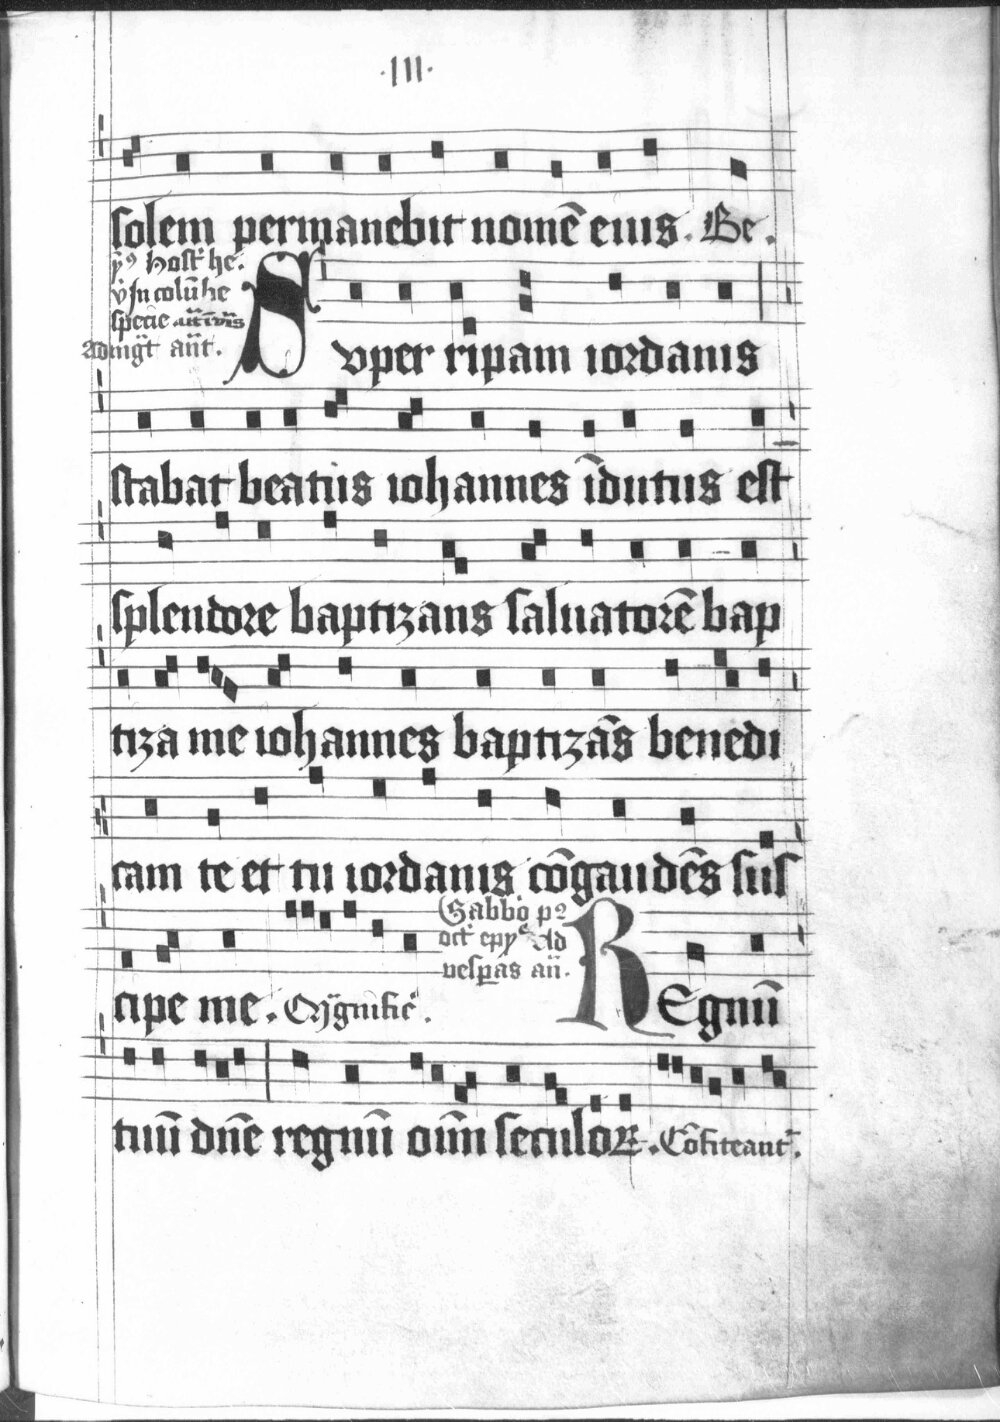 ·III·
solem permanebit nomē eius. Be.
ỹ⁹ Host' he.
v̓ In colūbe
specie
Admgt̄ an̄t.
Svper ripam iordanis
stabat beatus iohannes īdutus est
splendore baptizans saluatorē bap
tiza me iohannes baptizās benedi
cam te et tu iordanis cōgaudēs sus
cipe me. Mgnific̄.
Sabbo p⁹
oct' epy^e Ad
vesꝑas an̄.
REgnū
tuū dn̄e regnū oīm seculoꝝ. Cōfiteant̄.